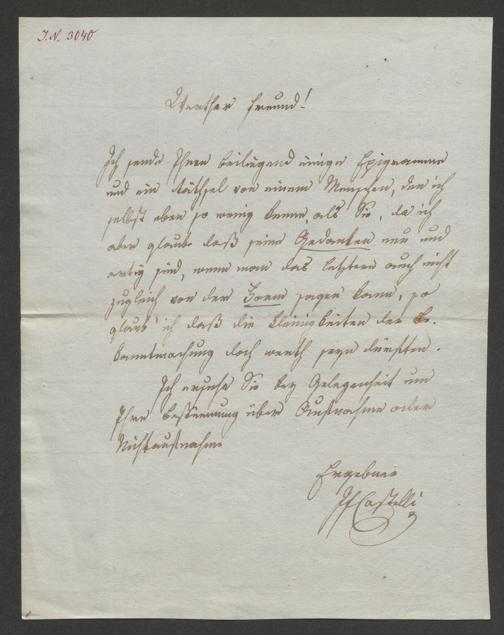 I.N. 3040
Werther Freund!
Ich sende Ihnen beiliegend einige Epigramme
und ein Räthsel von einem Menschen, den ich
selbst eben so wenig kenne, als Sie, da ich
aber glaube daß seine Gedanken neu und
artig sind, wenn man das letztere auch nicht
zugleich von der Form sagen kann, so
glaub' ich daß die Kleinigkeiten der Be-
kanntmachung doch werth seyn dürften.
Ich ersuche Sie bey Gelegenheit um
Ihre Bestimmung über Aufnahme oder
Nichtaufnahme
Ergebner
IFCastelli